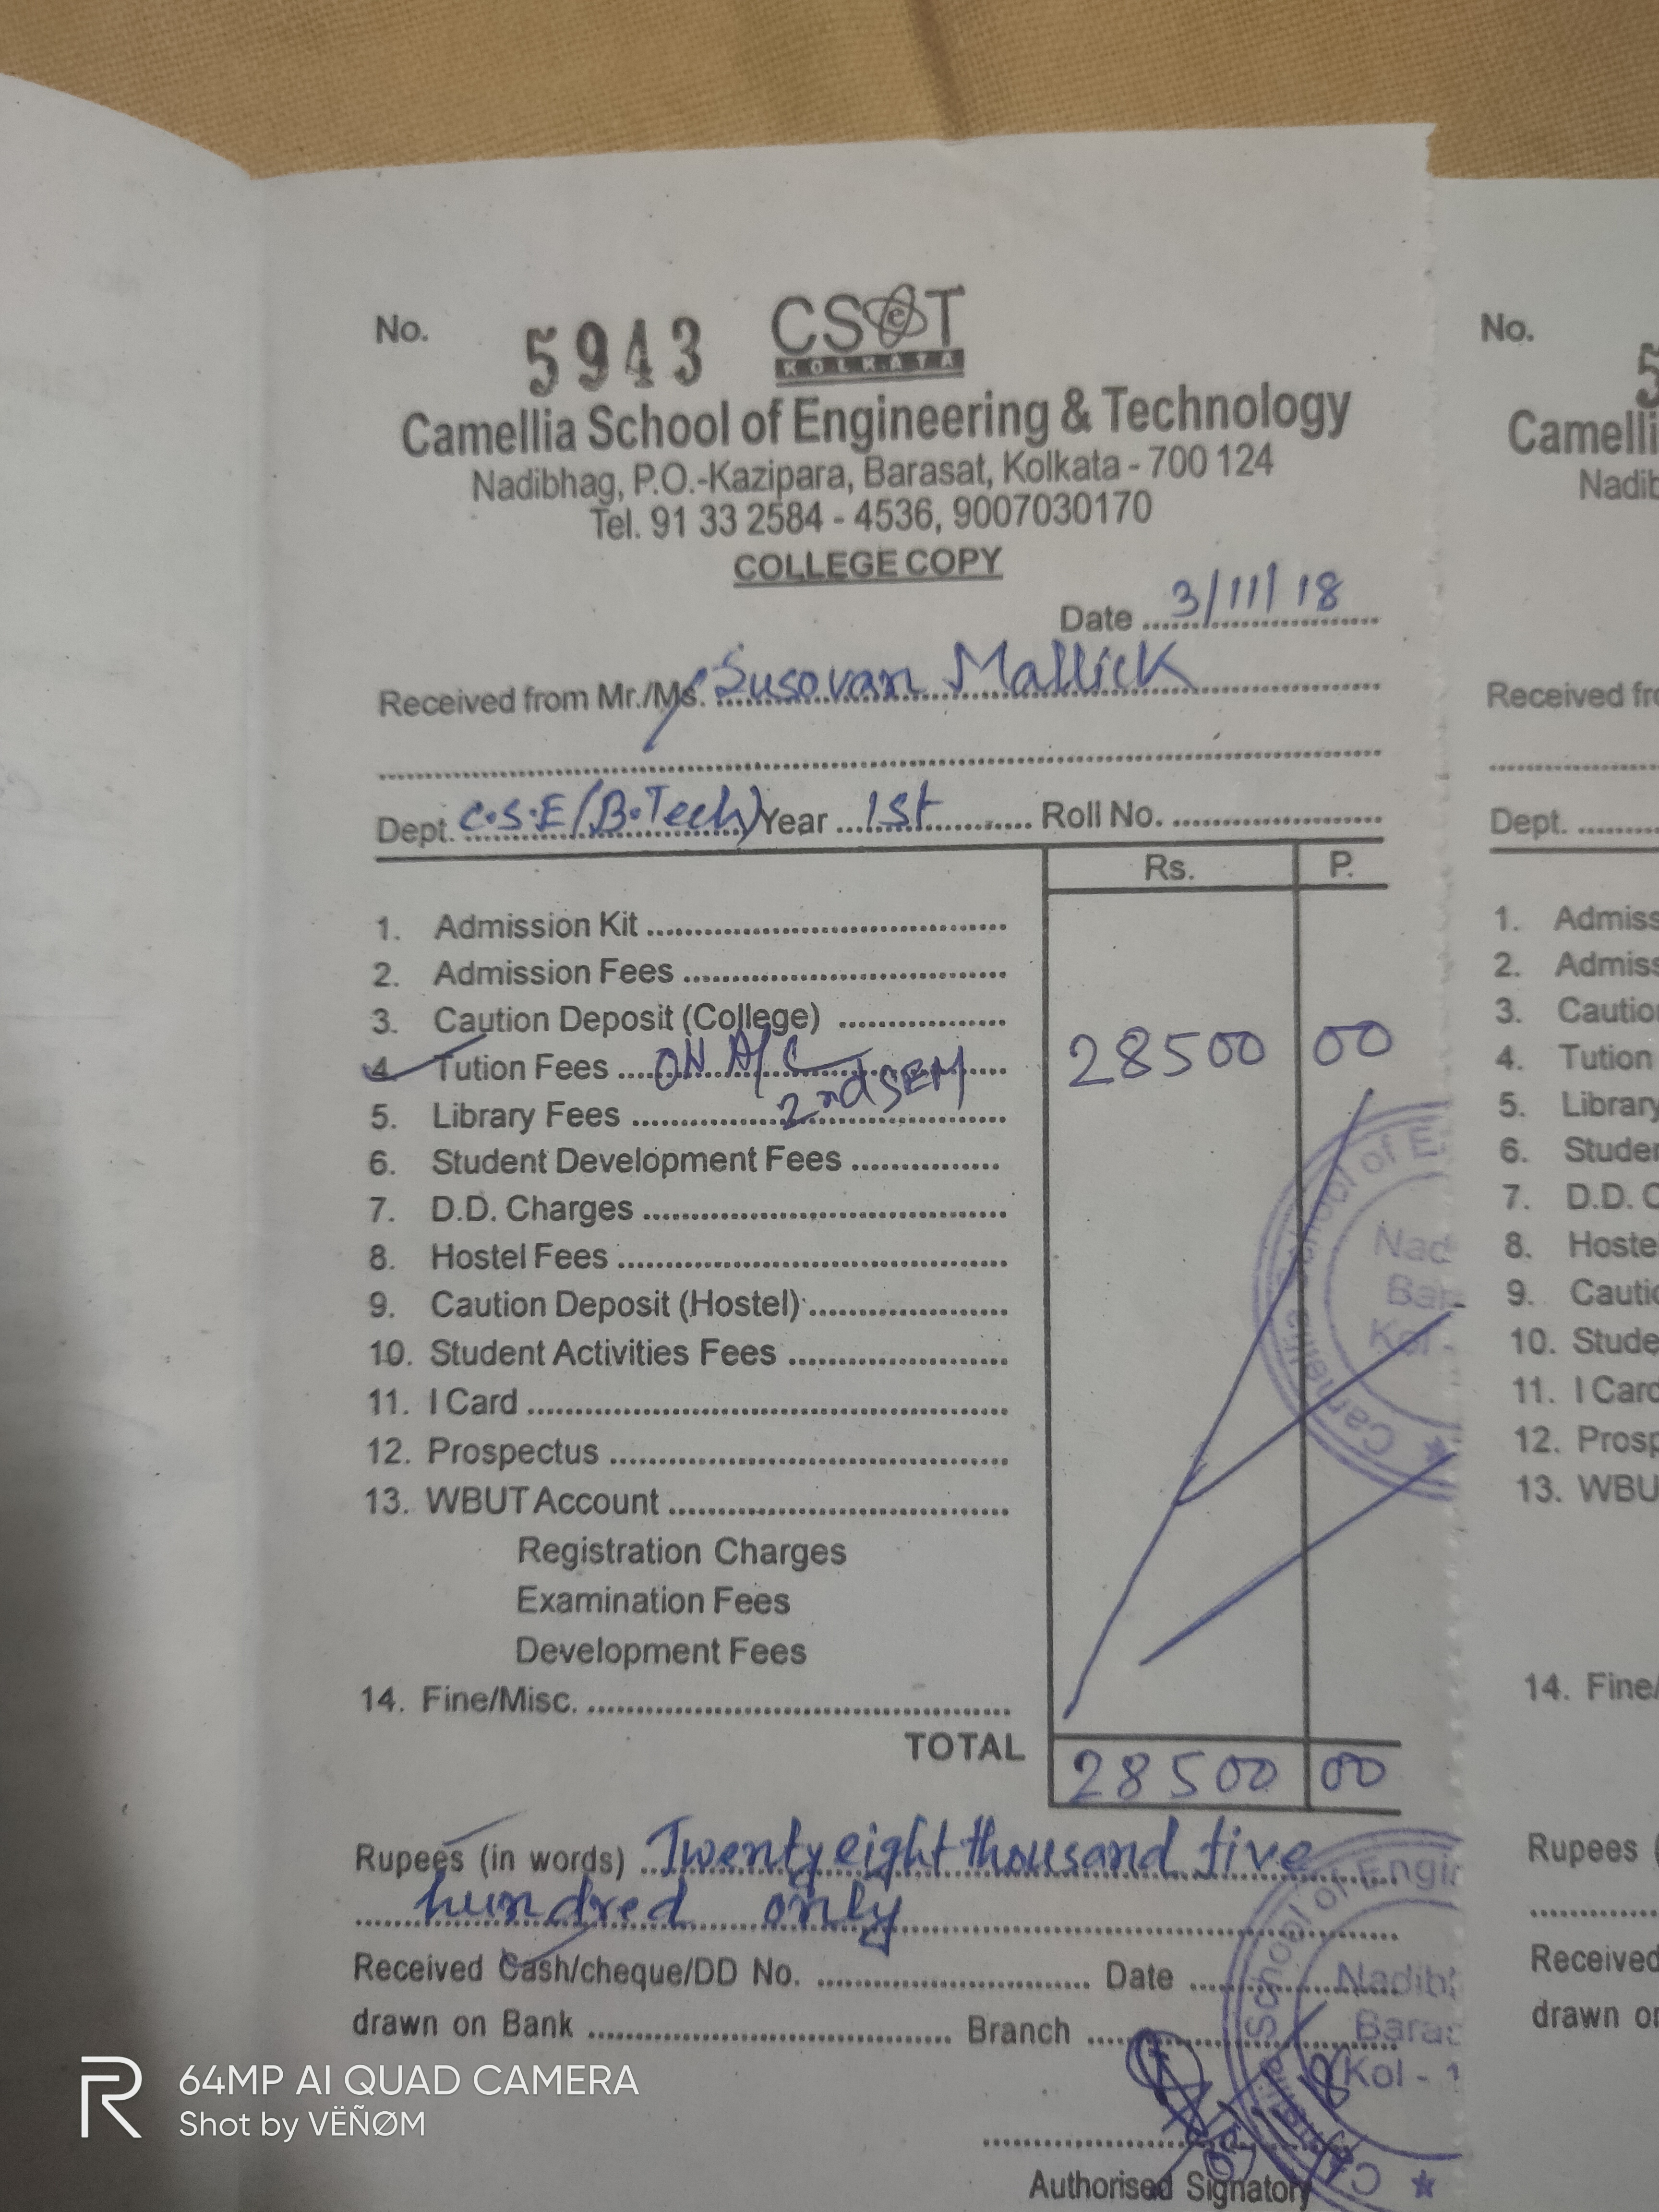 No. 5943 CSeT
KOLKATA
Camellia School of Engineering & Technology
Nadibhag, P.O.-Kazipara, Barasat, Kolkata - 700 124
Tel. 91 33 2584 - 4536, 9007030170
COLLEGE COPY
Date 3/11/18
Received from Mr./Ms. Susovan Mallick
Dept. C.S.E (B.Tech) Year 1st Roll No.
Rs. P.
1. Admission Kit
2. Admission Fees
3. Caution Deposit (College)
4. Tution Fees ON A/C 28500 00
2nd SEM
5. Library Fees
6. Student Development Fees
7. D.D. Charges
8. Hostel Fees
9. Caution Deposit (Hostel)
10. Student Activities Fees
11. I Card
12. Prospectus
13. WBUT Account
Registration Charges
Examination Fees
Development Fees
14. Fine/Misc.
TOTAL 28500 00
Rupees (in words) Twenty eight thousand five
hundred only
Received Cash/cheque/DD No. Date
drawn on Bank Branch
Authorised Signatory
No.
5
Camelli
Nadib
Received fro
Dept.
1. Admiss
2. Admiss
3. Cautio
4. Tution
5. Library
6. Studen
7. D.D. C
8. Hoste
9. Cautio
10. Stude
11. I Card
12. Prosp
13. WBU
14. Fine/
Rupees (
Received
drawn or
School of E
Nad
Bar
Kol -
Came
School of Engin
Nadibh
Baras
Kol - 1
R 64MP AI QUAD CAMERA
Shot by VËÑØM